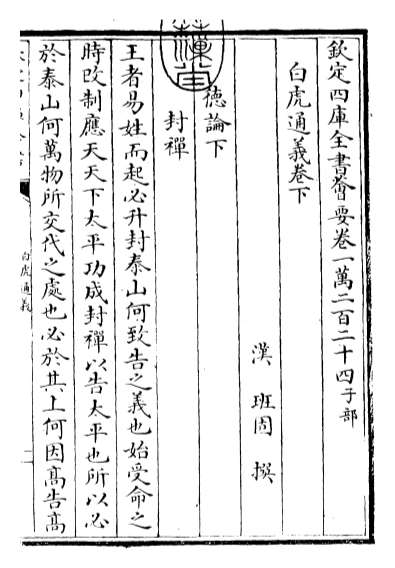 欽定四庫全書薈要卷一萬二百二十四子部
白虎通義卷下
漢 班固 撰
德論下
封禪
王者易姓而起必升封泰山何致告之義也始受命之
時改制應天天下太平功成封禪以告太平也所以必
於泰山何萬物所交代之處也必於其上何因髙告髙
白虎通義